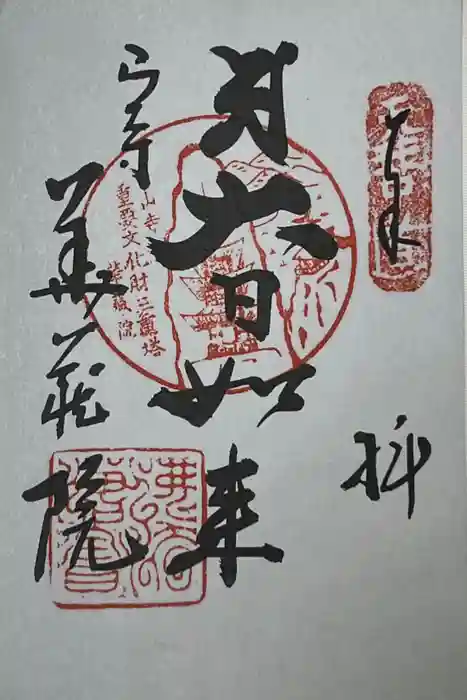 奉拝
大日如来
山寺
重要文化財三重塔
華蔵院
山寺 華蔵院